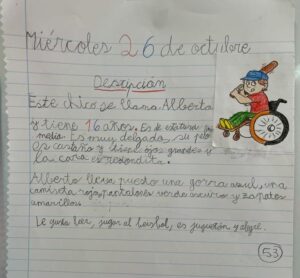 Miércoles 26 de octubre
Descripción
Este chico se llama Alberto
y tiene 16 años. Es de estatura
media. Es muy delgada, su pelo
es castaño y tiene ojos grandes y
la cara es redondita.
Alberto lleva puesto una gorra azul, una
camiseta roja, pantalones verde oscuro y zapatos
amarillos.
Le gusta leer, jugar al beisbol, es juguetón y alegre.
53